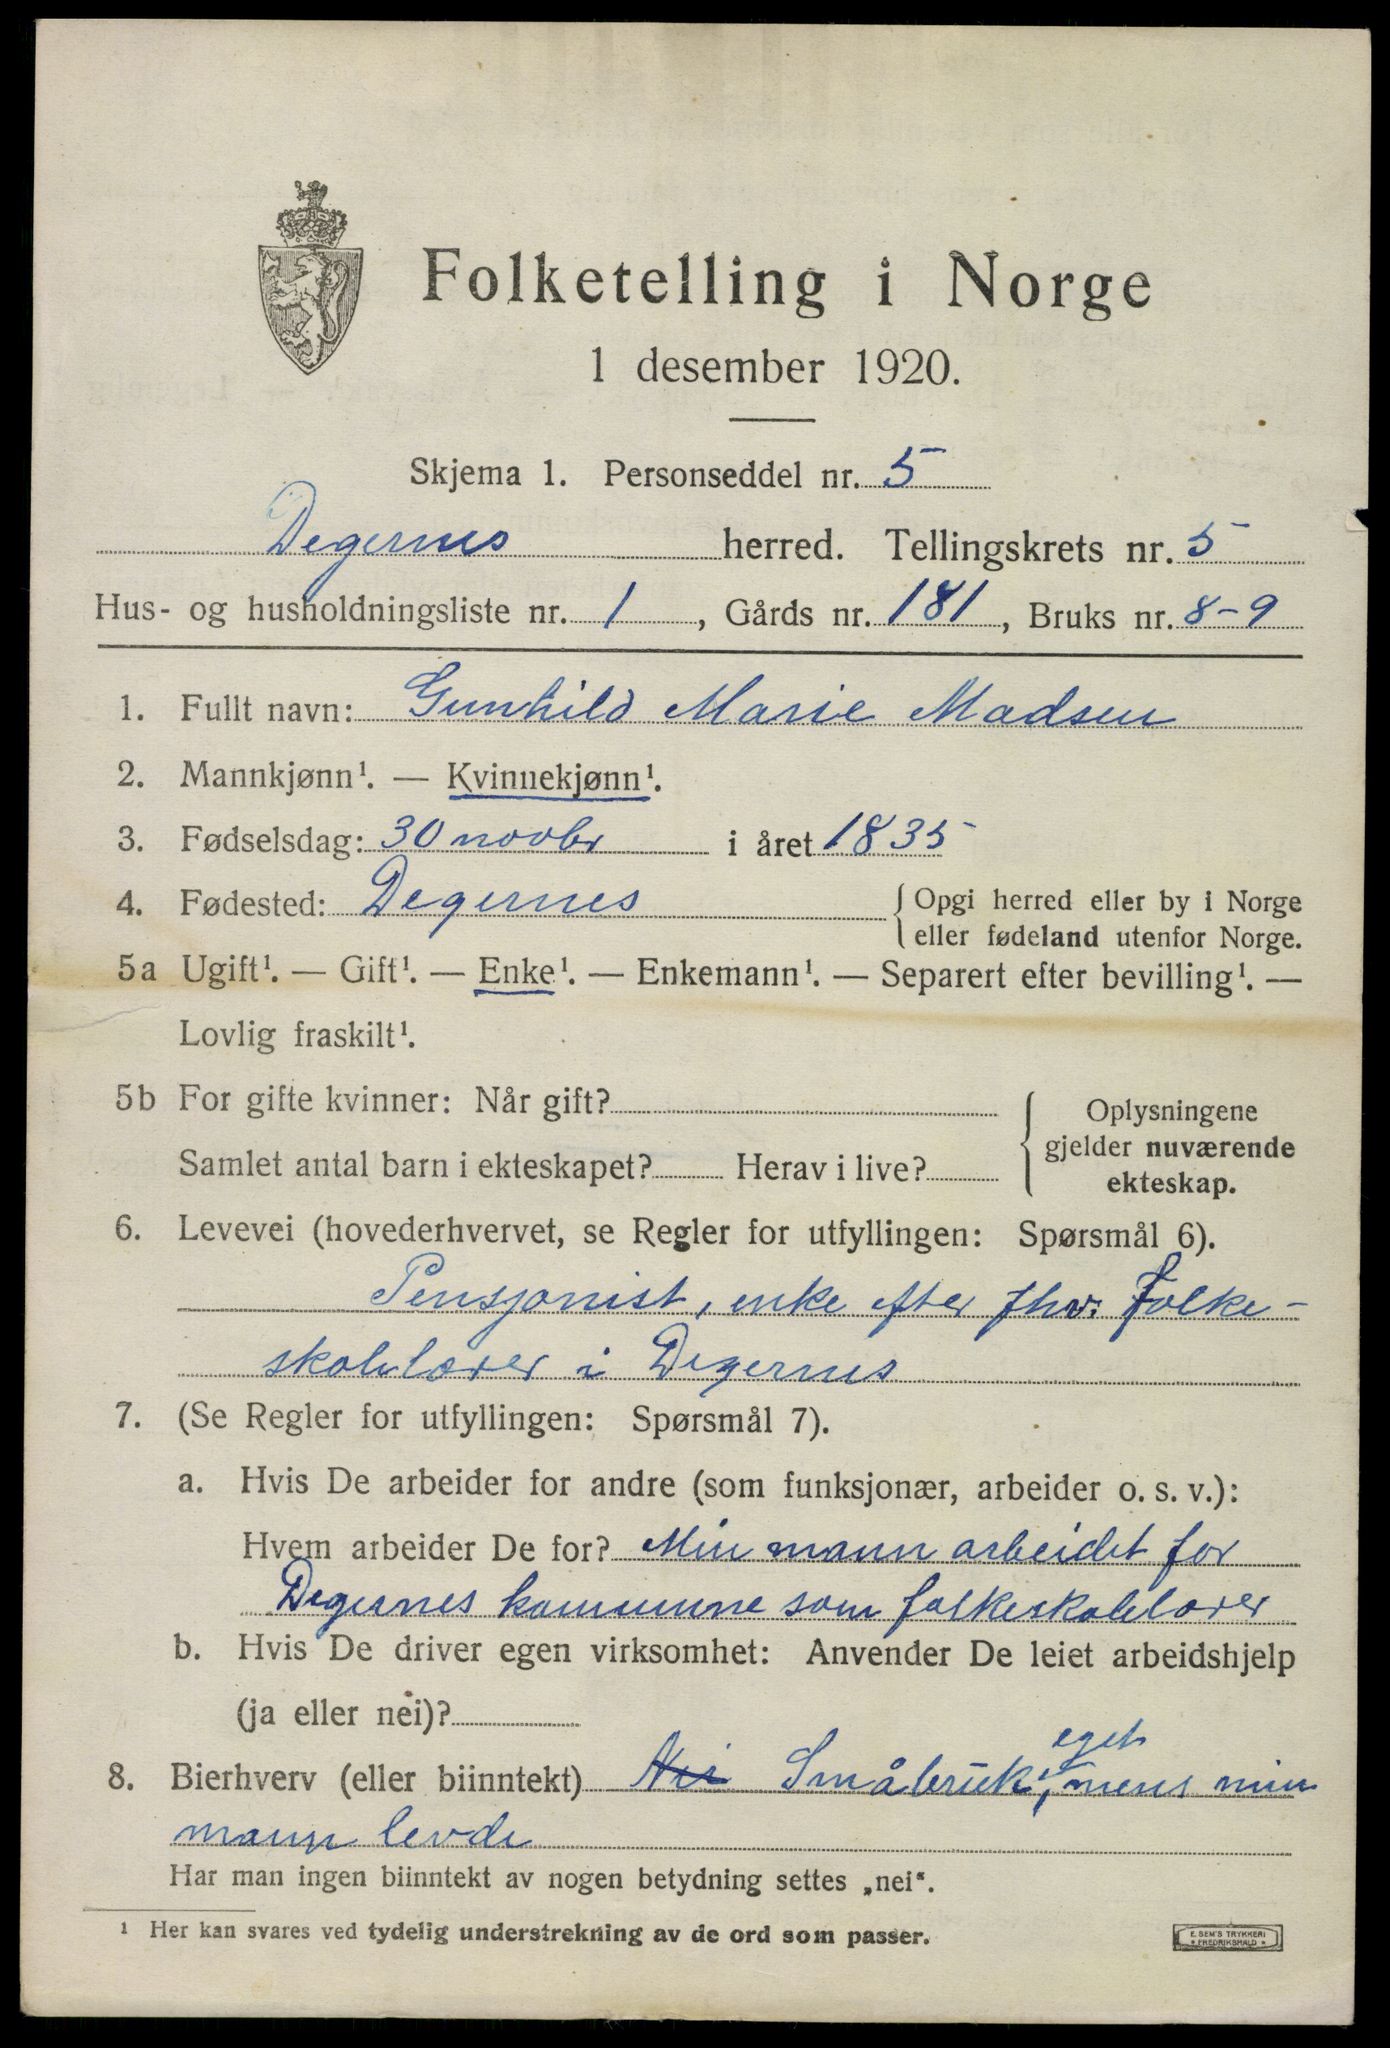 Folketelling i Norge
1 desember 1920.
Skjema 1. Personseddel nr. 5
Degernes herred. Tellingskrets nr. 5
Hus- og husholdningsliste nr. 1, Gårds nr. 181, Bruks nr. 8-9
1. Fullt navn: Gunhild Marie Madsen
2. Mannkjønn¹. — Kvinnekjønn¹.
3. Fødselsdag: 30 novbr i året 1835
4. Fødested: Degernes { Opgi herred eller by i Norge
eller fødeland utenfor Norge.
5a Ugift¹. — Gift¹. — Enke¹. — Enkemann¹. — Separert efter bevilling¹. —
Lovlig fraskilt¹.
5b For gifte kvinner: Når gift?
Samlet antal barn i ekteskapet? Herav i live?
{ Oplysningene
gjelder nuværende
ekteskap.
6. Levevei (hovederhvervet, se Regler for utfyllingen: Spørsmål 6).
Pensjonist, enke efter fhv. folke-
skolelærer i Degernes
7. (Se Regler for utfyllingen: Spørsmål 7).
a. Hvis De arbeider for andre (som funksjonær, arbeider o. s. v.):
Hvem arbeider De for? Min mann arbeidet for
Degernes kommune som folkeskolelærer
b. Hvis De driver egen virksomhet: Anvender De leiet arbeidshjelp
(ja eller nei)?
eget
8. Bierhverv (eller biinntekt) Nei Småbruk, mens min
mann levde
Har man ingen biinntekt av nogen betydning settes „nei“.
¹ Her kan svares ved tydelig understrekning av de ord som passer.
E. SEM'S TRYKKERI
* FREDRIKSHALD *